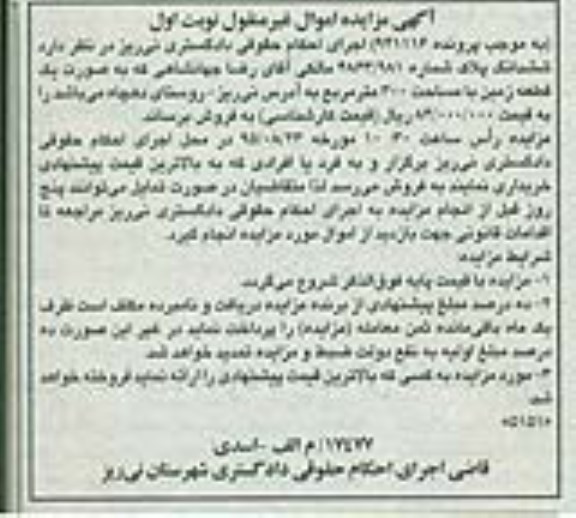 آگهی مزایده اموال غیرمنقول نوبت اول
(به موجب پرونده ۹۳۱۱۱۶) اجرای احکام حقوقی دادگستری نی‌ریز در نظر دارد
ششدانگ پلاک شماره ۴۸۳۳/۹۸۱ مالکی آقای رضا جهانشاهی که به صورت یک
قطعه زمین با مساحت ۳۰۰ مترمربع به آدرس نی‌ریز - روستای دهچاه می‌باشد را
به قیمت ۸۳/۰۰۰/۰۰۰ ریال (قیمت کارشناسی) به فروش برساند.
مزایده رأس ساعت ۱۰:۳۰ مورخه ۹۵/۰۸/۲۳ در محل اجرای احکام حقوقی
دادگستری نی‌ریز برگزار و به فرد یا افرادی که به بالاترین قیمت پیشنهادی
خریداری نمایند به فروش می‌رسد لذا متقاضیان در صورت تمایل می‌توانند پنج
روز قبل از انجام مزایده به اجرای احکام حقوقی دادگستری نی‌ریز مراجعه تا
اقدامات قانونی جهت بازدید از اموال مورد مزایده انجام گیرد.
شرایط مزایده:
۱- مزایده با قیمت پایه فوق‌الذکر شروع می‌گردد.
۲- ده درصد مبلغ پیشنهادی از برنده مزایده دریافت و نامبرده مکلف است ظرف
یک ماه باقی‌مانده ثمن معامله (مزایده) را پرداخت نماید در غیر این صورت ده
درصد مبلغ اولیه به نفع دولت ضبط و مزایده تجدید خواهد شد.
۳- مورد مزایده به کسی که بالاترین قیمت پیشنهادی را ارائه نماید فروخته خواهد
شد.
۵۱۵۱۰
۱۷۴۷۷/م الف - اسدی
قاضی اجرای احکام حقوقی دادگستری شهرستان نی‌ریز